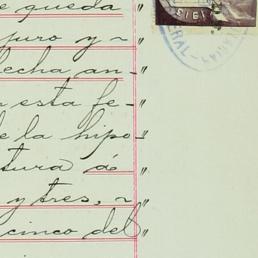 e queda
juro y -
fecha an- "
n esta fe- "
de la hipo- "
tura á "
y tres, ~ "
cinco del "